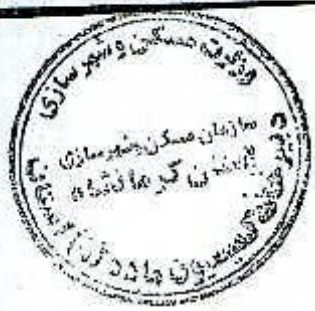 وزارت مسکن و شهرسازی
سازمان مسکن و شهرسازی
استان کرمانشاه
دبیرخانه کمیسیون ماده